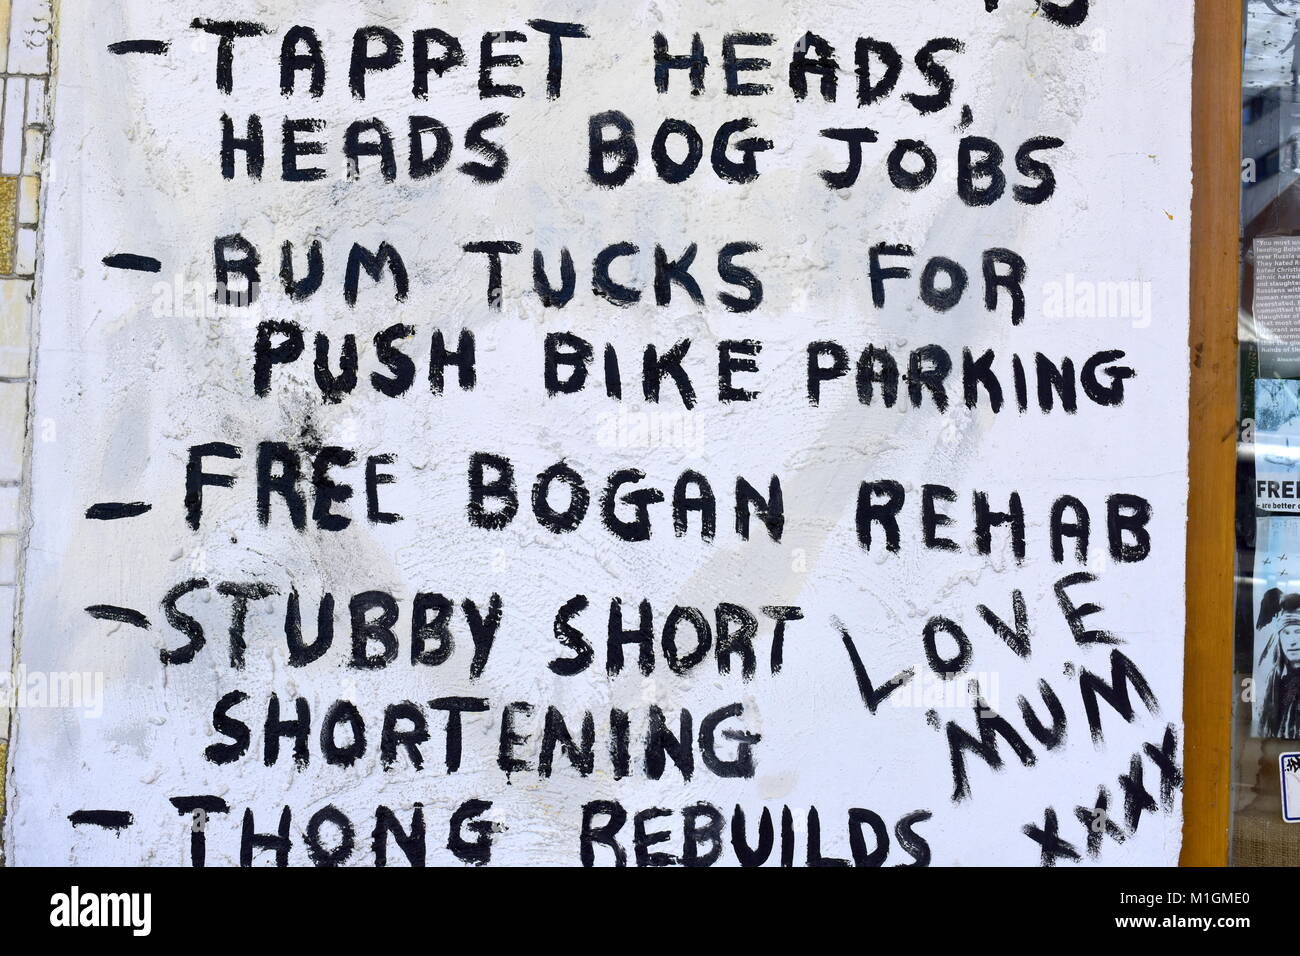 - TAPPET HEADS,
HEADS BOG JOBS
- BUM TUCKS FOR
PUSH BIKE PARKING
- FREE BOGAN REHAB
- STUBBY SHORT
SHORTENING
- THONG REBUILDS
LOVE
'MUM'
xxxx
FREE
alamy stock photo
M1GME0
www.alamy.com